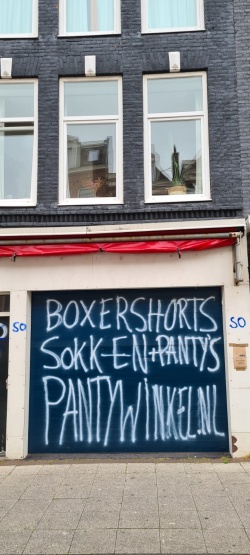 BOXERSHORTS
SOKKEN+PANTY'S
PANTYWINKEL.NL
SO
SO